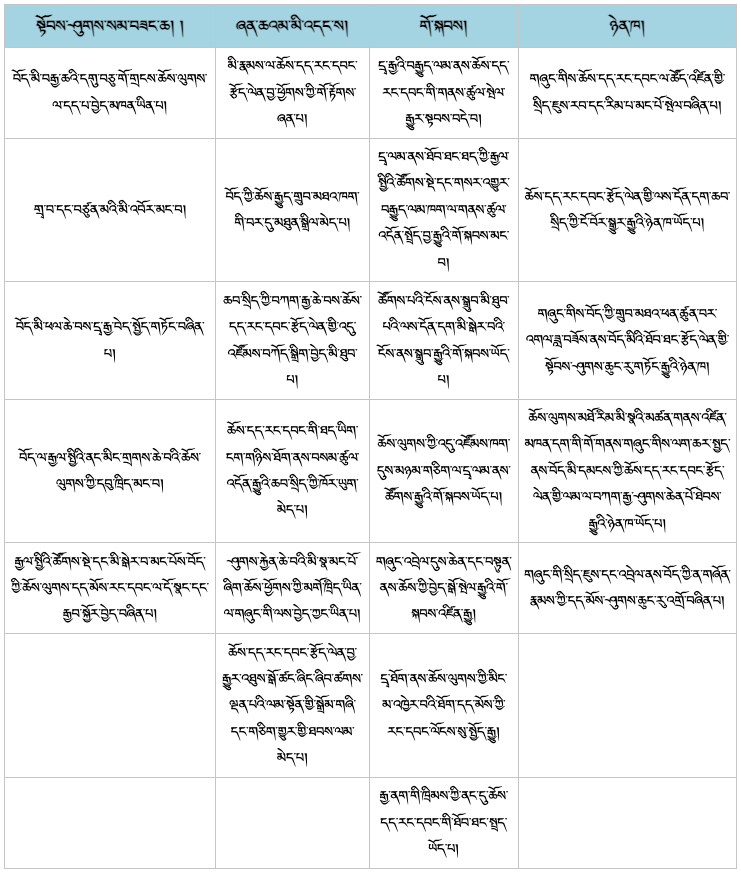 སྟོབས་ཤུགས་སམ་བཟང་ཆ། །
ཞན་ཆའམ་མི་འདང་ས།
གོ་སྐབས།
ཉེན་ཁ།
བོད་མི་བརྒྱ་ཆའི་དགུ་བཅུ་གོ་གྲངས་ཆོས་ལུགས་
ལ་དད་པ་བྱེད་མཁན་ཡིན་པ།
མི་རྣམས་ལ་ཆོས་དད་རང་དབང་
རྩོད་ལེན་བྱ་ཕྱོགས་ཀྱི་གོ་རྟོགས་
ཞན་པ།
དྲྭ་རྒྱའི་བརྒྱུད་ལམ་ནས་ཆོས་དད་
རང་དབང་གི་གནས་ཚུལ་སྤེལ་
རྒྱུར་སྟབས་བདེ་བ།
གཞུང་གིས་ཆོས་དད་རང་དབང་ལ་ཚོད་འཛིན་གྱི་
སྲིད་ཇུས་རབ་དང་རིམ་པ་མང་པོ་སྤེལ་བཞིན་པ།
གྲྭ་བ་དང་བཙུན་མའི་མི་འབོར་མང་བ།
བོད་ཀྱི་ཆོས་རྒྱུད་གྲུབ་མཐའ་ཁག་
གི་བར་དུ་མཐུན་སྒྲིལ་མེད་པ།
དྲྭ་ལམ་ནས་ཐོབ་ཐང་ཐད་ཀྱི་རྒྱལ་
སྤྱིའི་ཚོགས་སྡེ་དང་གསར་འགྱུར་
བརྒྱུད་ལམ་ཁག་ལ་གནས་ཚུལ་
འདོན་སྤྲོད་བྱ་རྒྱུའི་གོ་སྐབས་མང་
བ།
ཆོས་དད་རང་དབང་རྩོད་ལེན་གྱི་ལས་དོན་དག་ཆབ་
སྲིད་ཀྱི་ངོ་བོར་སྒྱུར་རྒྱུའི་ཉེན་ཁ་ཡོད་པ།
བོད་མི་ཕལ་ཆེ་བས་དྲྭ་རྒྱ་བེད་སྤྱོད་གཏོང་བཞིན་
པ།
ཆབ་སྲིད་ཀྱི་བཀག་རྒྱ་ཆེ་བས་ཆོས་
དད་རང་དབང་རྩོད་ལེན་གྱི་འདུ་
འཛོམས་བཀོད་སྒྲིག་བྱེད་མི་ཐུབ་
པ།
ཚོགས་པའི་ངོས་ནས་སྒྲུབ་མི་ཐུབ་
པའི་ལས་དོན་དག་མི་སྒེར་བའི་
ངོས་ནས་སྒྲུབ་རྒྱུའི་གོ་སྐབས་ཡོད་
པ།
གཞུང་གིས་བོད་ཀྱི་གྲུབ་མཐའ་ཕན་ཚུན་བར་
འགལ་ཟླ་བཟོས་ནས་བོད་མིའི་ཐོབ་ཐང་རྩོད་ལེན་གྱི་
སྟོབས་ཤུགས་ཆུང་རུ་གཏོང་རྒྱུའི་ཉེན་ཁ།
བོད་ལ་རྒྱལ་སྤྱིའི་ནང་མིང་གྲགས་ཆེ་བའི་ཆོས་
ལུགས་ཀྱི་དབུ་ཁྲིད་མང་བ།
ཆོས་དད་རང་དབང་གི་ཐད་ཡིག་
ངག་གཉིས་ཐོག་ནས་བསམ་ཚུལ་
འདོན་རྒྱུའི་ཆབ་སྲིད་ཀྱི་ཁོར་ཡུག་
མེད་པ།
ཆོས་ལུགས་ཀྱི་འདུ་འཛོམས་ཁག་
དུས་མཉམ་གཅིག་ལ་དྲྭ་ལམ་ནས་
ཚོགས་རྒྱུའི་གོ་སྐབས་ཡོད་པ།
ཆོས་ལུགས་མཐོ་རིམ་མི་སྣའི་མཚན་གནས་འཛིན་
མཁན་དག་གི་གོ་གནས་གཞུང་གིས་ལག་ཆར་སྤྱད་
ནས་བོད་མི་དམངས་ཀྱི་ཆོས་དད་རང་དབང་རྩོད་
ལེན་གྱི་ལམ་ལ་བཀག་རྒྱ་ཤུགས་ཆེན་པོ་ཐེབས་
རྒྱུའི་ཉེན་ཁ་ཡོད་པ།
རྒྱལ་སྤྱིའི་ཚོགས་སྡེ་དང་མི་སྒེར་བ་མང་པོས་བོད་
ཀྱི་ཆོས་ལུགས་དད་མོས་རང་དབང་ལ་དོ་སྣང་དང་
རྒྱབ་སྐྱོར་བྱེད་བཞིན་པ།
ཤུགས་རྐྱེན་ཆེ་བའི་མི་སྣ་མང་པོ་
ཞིག་ཆོས་ཕྱོགས་ཀྱི་མགོ་ཁྲིད་ཡིན་
ལ་གཞུང་གི་ལས་བྱེད་ཀྱང་ཡིན་པ།
གཞུང་འབྲེལ་དུས་ཆེན་དང་བསྟུན་
ནས་ཆོས་ཀྱི་བྱེད་སྒོ་སྤེལ་རྒྱུའི་གོ་
སྐབས་འཛིན་རྒྱུ།
གཞུང་གི་སྲིད་ཇུས་དང་འབྲེལ་ནས་བོད་ཀྱི་ན་གཞོན་
རྣམས་ཀྱི་དད་མོས་ཤུགས་ཆུང་རུ་འགྲོ་བཞིན་པ།
ཆོས་དད་རང་དབང་རྩོད་ལེན་བྱ་
རྒྱུར་འཐུས་སྒོ་ཚང་ཞིང་ཞིབ་ཚགས་
ལྡན་པའི་ལམ་སྟོན་གྱི་སྒྲོམ་གཞི་
དང་གཅིག་གྱུར་གྱི་ཐབས་ལམ་
མེད་པ།
དྲྭ་ཐོག་ནས་ཆོས་ལུགས་ཀྱི་མིང་
མ་འཁྱེར་བའི་ཐོག་དད་མོས་ཀྱི་
རང་དབང་ལོངས་སུ་སྤྱོད་རྒྱུ།
རྒྱ་ནག་གི་ཁྲིམས་ཀྱི་ནང་དུ་ཆོས་
དད་རང་དབང་གི་ཐོབ་ཐང་སྤྲད་
ཡོད་པ།